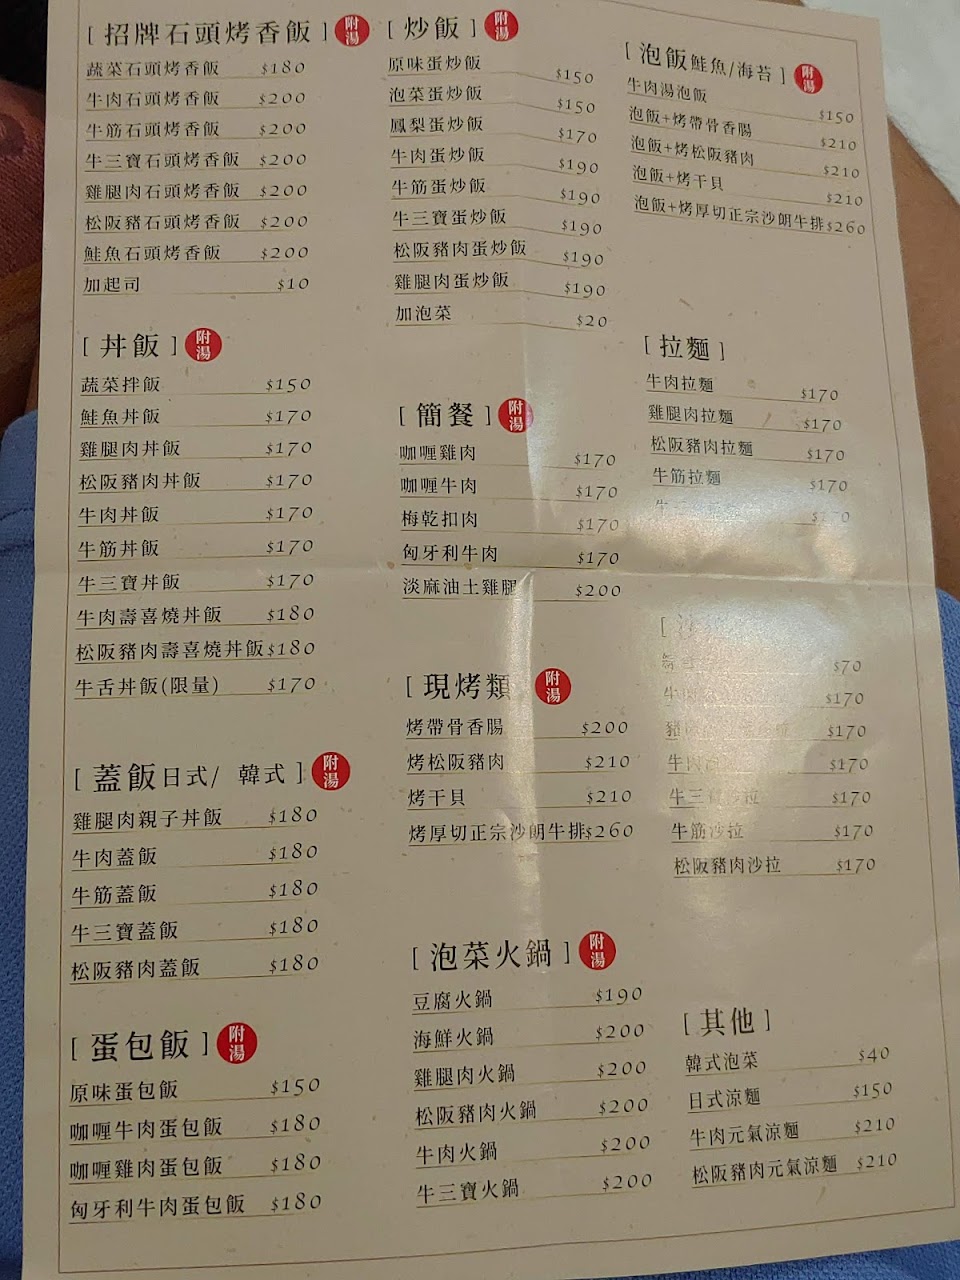 [ 招牌石頭烤香飯 ] 附湯
蔬菜石頭烤香飯 $180
牛肉石頭烤香飯 $200
牛筋石頭烤香飯 $200
牛三寶石頭烤香飯 $200
雞腿肉石頭烤香飯 $200
松阪豬石頭烤香飯 $200
鮭魚石頭烤香飯 $200
加起司 $10
[ 丼飯 ] 附湯
蔬菜拌飯 $150
鮭魚丼飯 $170
雞腿肉丼飯 $170
松阪豬肉丼飯 $170
牛肉丼飯 $170
牛筋丼飯 $170
牛三寶丼飯 $170
牛肉壽喜燒丼飯 $180
松阪豬肉壽喜燒丼飯 $180
牛舌丼飯(限量) $170
[ 蓋飯日式/ 韓式 ] 附湯
雞腿肉親子丼飯 $180
牛肉蓋飯 $180
牛筋蓋飯 $180
牛三寶蓋飯 $180
松阪豬肉蓋飯 $180
[ 蛋包飯 ] 附湯
原味蛋包飯 $150
咖喱牛肉蛋包飯 $180
咖喱雞肉蛋包飯 $180
匈牙利牛肉蛋包飯 $180
[ 炒飯 ] 附湯
原味蛋炒飯 $150
泡菜蛋炒飯 $150
鳳梨蛋炒飯 $170
牛肉蛋炒飯 $190
牛筋蛋炒飯 $190
牛三寶蛋炒飯 $190
松阪豬肉蛋炒飯 $190
雞腿肉蛋炒飯 $190
加泡菜 $20
[ 簡餐 ] 附湯
咖喱雞肉 $170
咖喱牛肉 $170
梅乾扣肉 $170
匈牙利牛肉 $170
淡麻油土雞腿 $200
[ 現烤類 附湯
烤帶骨香腸 $200
烤松阪豬肉 $210
烤干貝 $210
烤厚切正宗沙朗牛排 $260
[ 泡菜火鍋 ] 附湯
豆腐火鍋 $190
海鮮火鍋 $200
雞腿肉火鍋 $200
松阪豬肉火鍋 $200
牛肉火鍋 $200
牛三寶火鍋 $200
[ 泡飯鮭魚/海苔 ] 附湯
牛肉湯泡飯 $150
泡飯+烤帶骨香腸 $210
泡飯+烤松阪豬肉 $210
泡飯+烤干貝 $210
泡飯+烤厚切正宗沙朗牛排 $260
[ 拉麵 ]
牛肉拉麵 $170
雞腿肉拉麵 $170
松阪豬肉拉麵 $170
牛筋拉麵 $170
$170
$70
$170
$170
牛肉 $170
牛三寶沙拉 $170
牛筋沙拉 $170
松阪豬肉沙拉 $170
[ 其他 ]
韓式泡菜 $40
日式涼麵 $150
牛肉元氣涼麵 $210
松阪豬肉元氣涼麵 $210